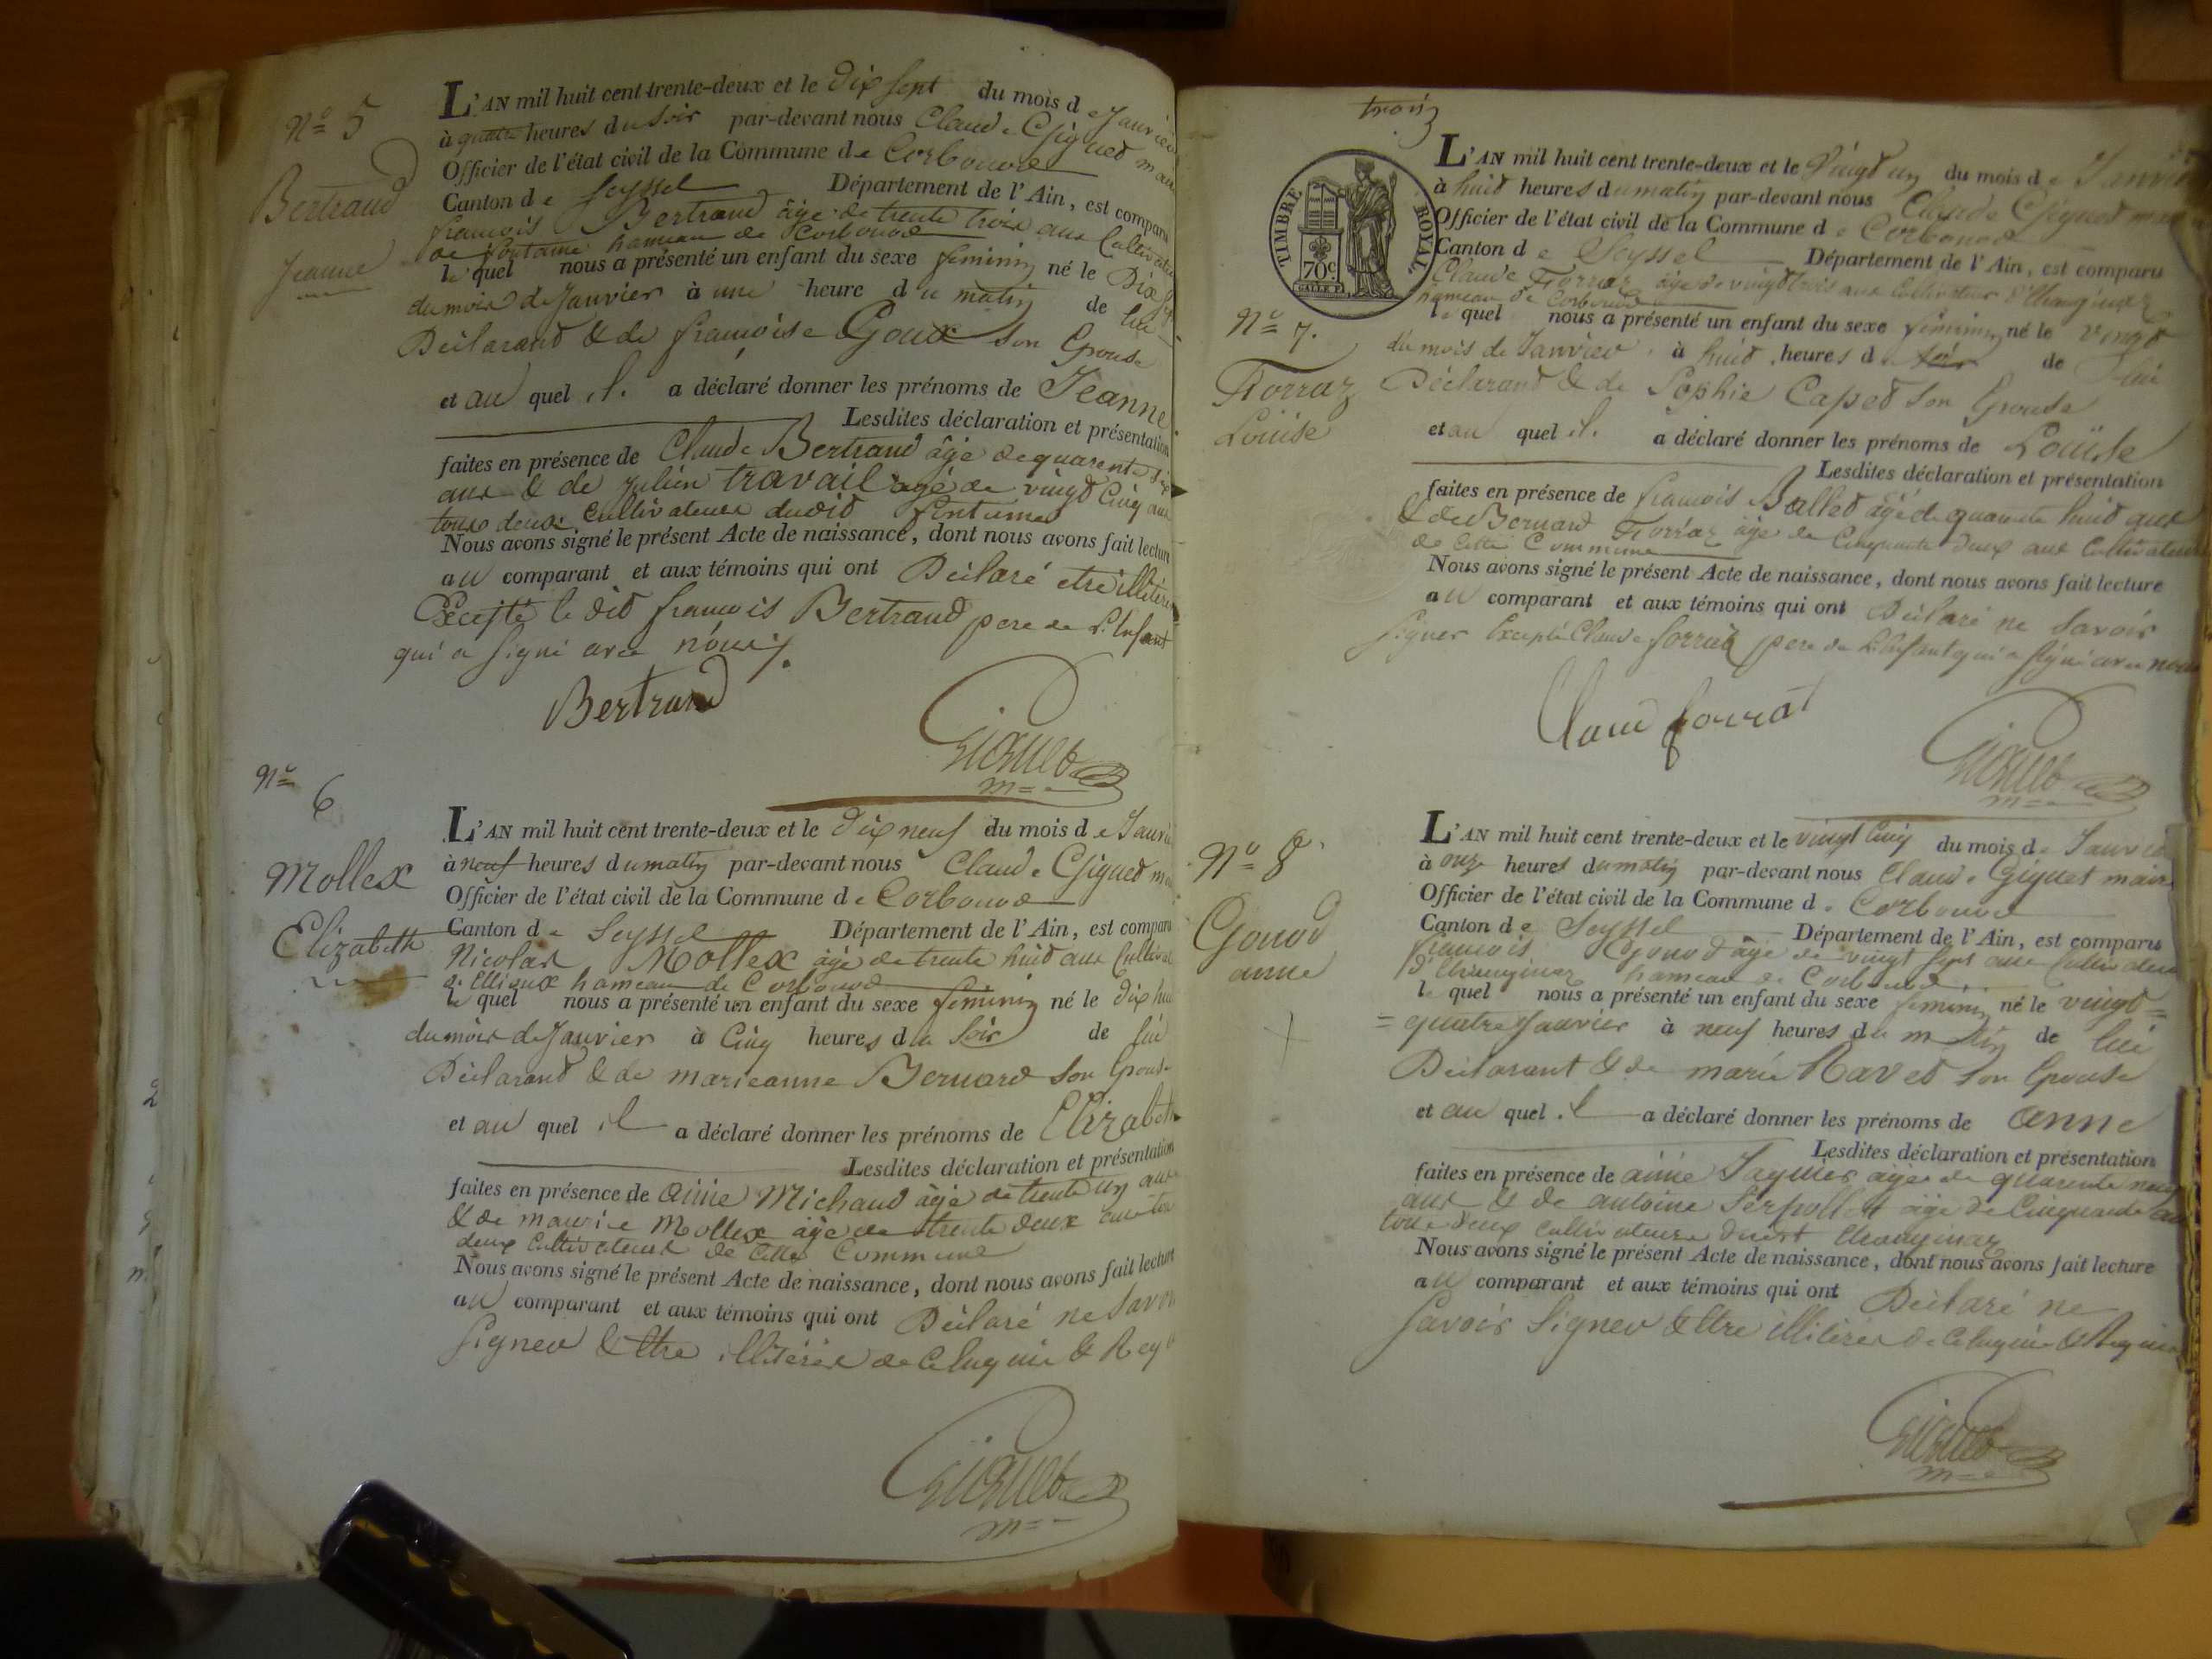 Nº 5
Bertrand
Jeanne
L'AN mil huit cent trente-deux et le dix sept du mois de Janvier
à quatre heures du soir par-devant nous Claude Giguet mai
Officier de l'état civil de la Commune de Corbonod
Canton de Seyssel Département de l'Ain, est comparu
francois Bertrand âgé de trente trois ans Cultivateur
de fontaine hameau de Corbonod
le quel nous a présenté un enfant du sexe feminin né le Dix
du mois de Janvier à une heure du matin de lui
Déclarand & de francoise Goux son Epouse
et au quel il a déclaré donner les prénoms de Jeanne
Lesdites déclaration et présentation
faites en présence de Claude Bertrand âgé de quarente
ans & de Julien travail agé de vingt Cinq ans
tous deux Cultivateurs dudit
Nous avons signé le présent Acte de naissance, dont nous avons fait lecture
au comparant et aux témoins qui ont Déclaré etre illitéré
Excepté le dit francois Bertrand pere de L'Enfant
qui a signé avec nous
Bertrand
Giguet
m=
Nº 6
Mollex
Elizabeth
L'AN mil huit cent trente-deux et le dix neuf du mois de Janvi
à neuf heures du matin par-devant nous Claude Giguet m
Officier de l'état civil de la Commune de Corbonod
Canton de Seyssel Département de l'Ain, est comparu
Nicolas Mollex âgé de trente huit ans Cultivat
d'Ellioux hameau de Corbonod
le quel nous a présenté un enfant du sexe feminin né le dix hui
du mois de Janvier à Cinq heures du soir de lui
Déclarand & de marieanne Bernard son Epouse
et au quel il a déclaré donner les prénoms de Elizabeth
Lesdites déclaration et présentation
faites en présence de aimé Michaud âgé de trente un ans
& de maurice Mollex âgé de trente deux ans tou
deux Cultivateurs de Cette Commune
Nous avons signé le présent Acte de naissance, dont nous avons fait lecture
au comparant et aux témoins qui ont Déclaré ne Savoi
signer & Etre illitérés de Ce Enquis & Req
Giguet
m=
trois
TIMBRE ROYAL
70c
L'AN mil huit cent trente-deux et le Vingt un du mois de Janvie
à huit heures du matin par-devant nous Claude Giguet mai
Officier de l'état civil de la Commune de Corbonod
Canton de Seyssel Département de l'Ain, est comparu
Claude Forraz âgé de vingt trois ans Cultivateur
hameau de Corbonod
le quel nous a présenté un enfant du sexe feminin né le vingt
Nº 7.
Forraz
Loüise
du mois de Janvier à huit heures du soir de lui
Déclarand & de Sophie Capet son Epouse
et au quel il a déclaré donner les prénoms de Loüise
Lesdites déclaration et présentation
faites en présence de francois Ballet âgé de quarente huit ans
& de Bernard Forraz âgé de Cinquante deux ans Cultivateurs
de Cette Commune
Nous avons signé le présent Acte de naissance, dont nous avons fait lecture
au comparant et aux témoins qui ont Déclaré ne savoir
signer Excepté Claude forraz pere de L'Enfant qui a signé avec nous
Claud forrat
Giguet
m=
Nº 8
Gonod
anne
L'AN mil huit cent trente-deux et le vingt Cinq du mois de Janvie
à onze heures du matin par-devant nous Claude Giguet maire
Officier de l'état civil de la Commune de Corbonod
Canton de Seyssel Département de l'Ain, est comparu
francois Gonod âgé de vingt sept ans Cultivateur
hameau de Corbonod
le quel nous a présenté un enfant du sexe feminin né le vingt=
=quatre Janvier à neuf heures du matin de lui
Déclarant & de marie Ravet son Epouse
et au quel il a déclaré donner les prénoms de anne
Lesdites déclaration et présentation
faites en présence de aimé âgé de quarente neuf
ans & de antoine Serpollet âgé de Cinquante
tous deux cultivateurs dudit
Nous avons signé le présent Acte de naissance, dont nous avons fait lecture
au comparant et aux témoins qui ont Déclaré ne
savoir signer & Etre illitérés de Ce Enquis & Requis
Giguet
m=